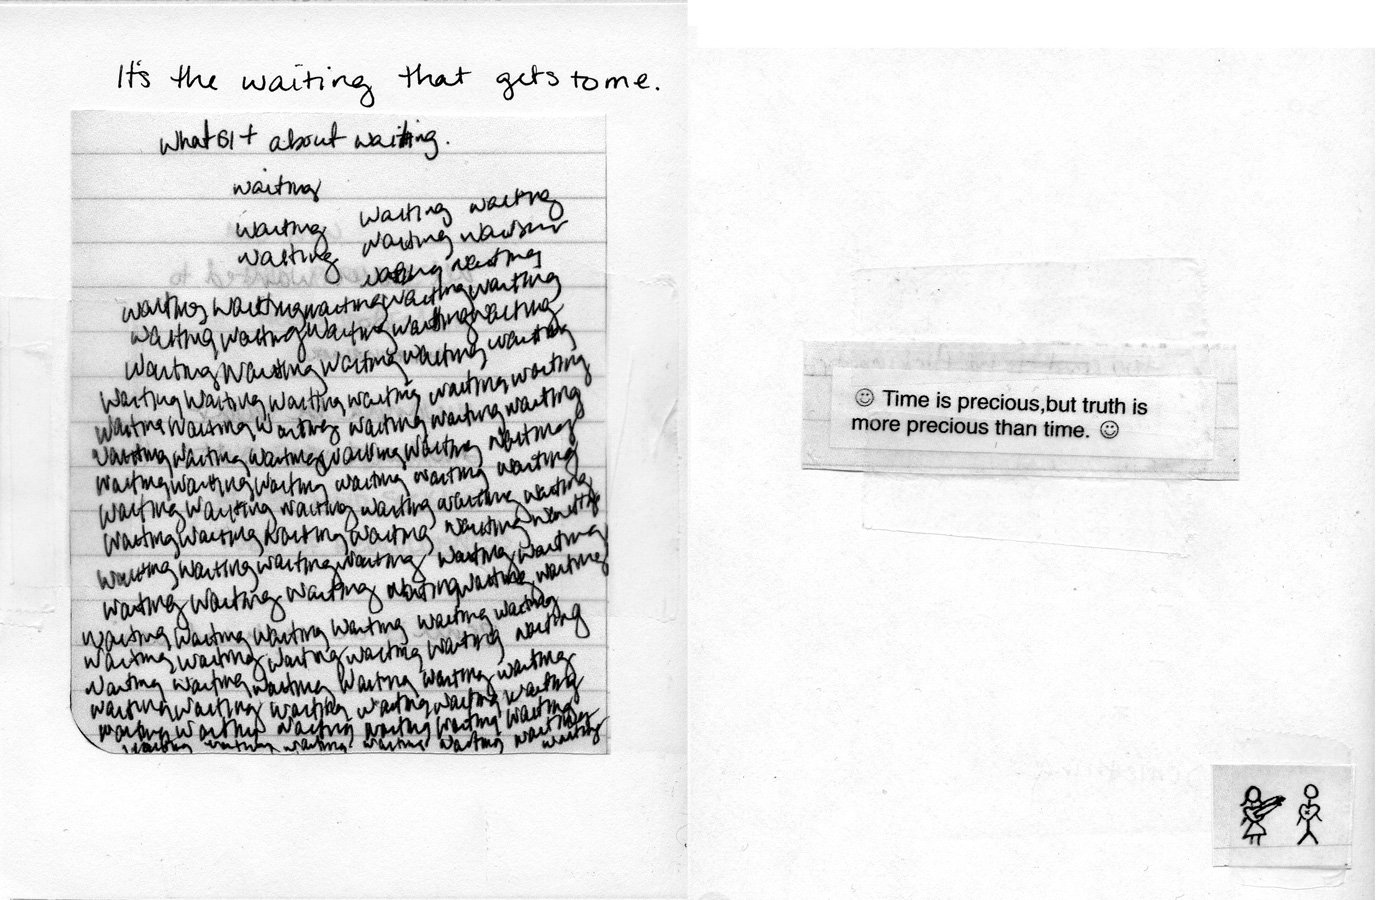 It's the waiting that gets to me.
What is it about waiting.
waiting
waiting waiting waiting
waiting waiting waiting
waiting waiting
waiting waiting waiting waiting waiting
waiting waiting waiting waiting waiting
waiting waiting waiting waiting waiting
waiting waiting waiting waiting waiting waiting
waiting waiting waiting waiting waiting waiting
waiting waiting waiting waiting waiting waiting
waiting waiting waiting waiting waiting waiting
waiting waiting waiting waiting waiting waiting
waiting waiting waiting waiting waiting waiting
waiting waiting waiting waiting waiting waiting
waiting waiting waiting waiting waiting waiting
waiting waiting waiting waiting waiting waiting
waiting waiting waiting waiting waiting waiting
waiting waiting waiting waiting waiting waiting
waiting waiting waiting waiting waiting waiting
waiting waiting waiting waiting waiting waiting
waiting waiting waiting waiting waiting waiting
waiting
☺ Time is precious,but truth is
more precious than time. ☺